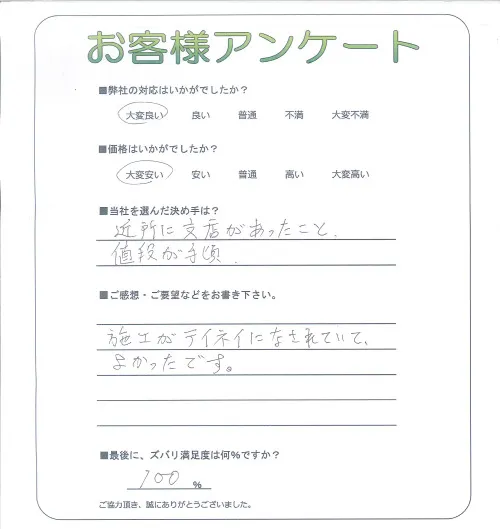 お客様アンケート
■弊社の対応はいかがでしたか？
大変良い 良い 普通 不満 大変不満
■価格はいかがでしたか？
大変安い 安い 普通 高い 大変高い
■当社を選んだ決め手は？
近所に支店があったこと、
値段が手頃．
■ご感想・ご要望などをお書き下さい。
施工がテイネイになされていて、
よかったです。
■最後に、ズバリ満足度は何%ですか？
100 %
ご協力頂き、誠にありがとうございました。